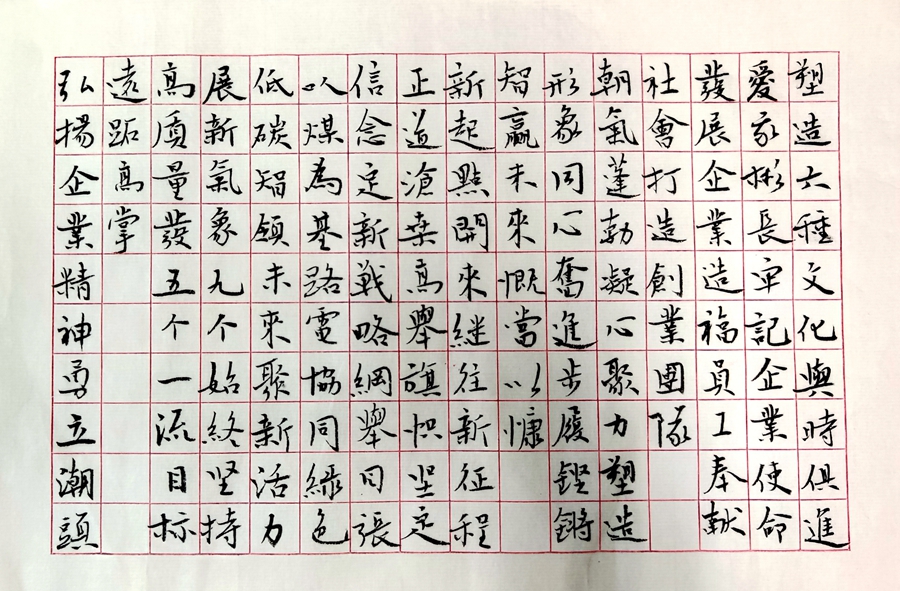 塑造六種文化與時俱進
愛家彬長牢記企業使命
發展企業造福員工奉献
社會打造創業團隊
朝氣蓬勃凝心聚力塑造
形象同心奮進步履鏗鏘
智贏未來慨當以慷
新起點開來継往新征程
正道滄桒高舉旗帜坚定
信念定新戰略綱舉目張
以煤為基路電協同緑色
低碳智領未來聚新活力
展新氣象九个始終坚持
高质量發五个一流目标
遠跖高掌
弘揚企業精神勇立潮頭